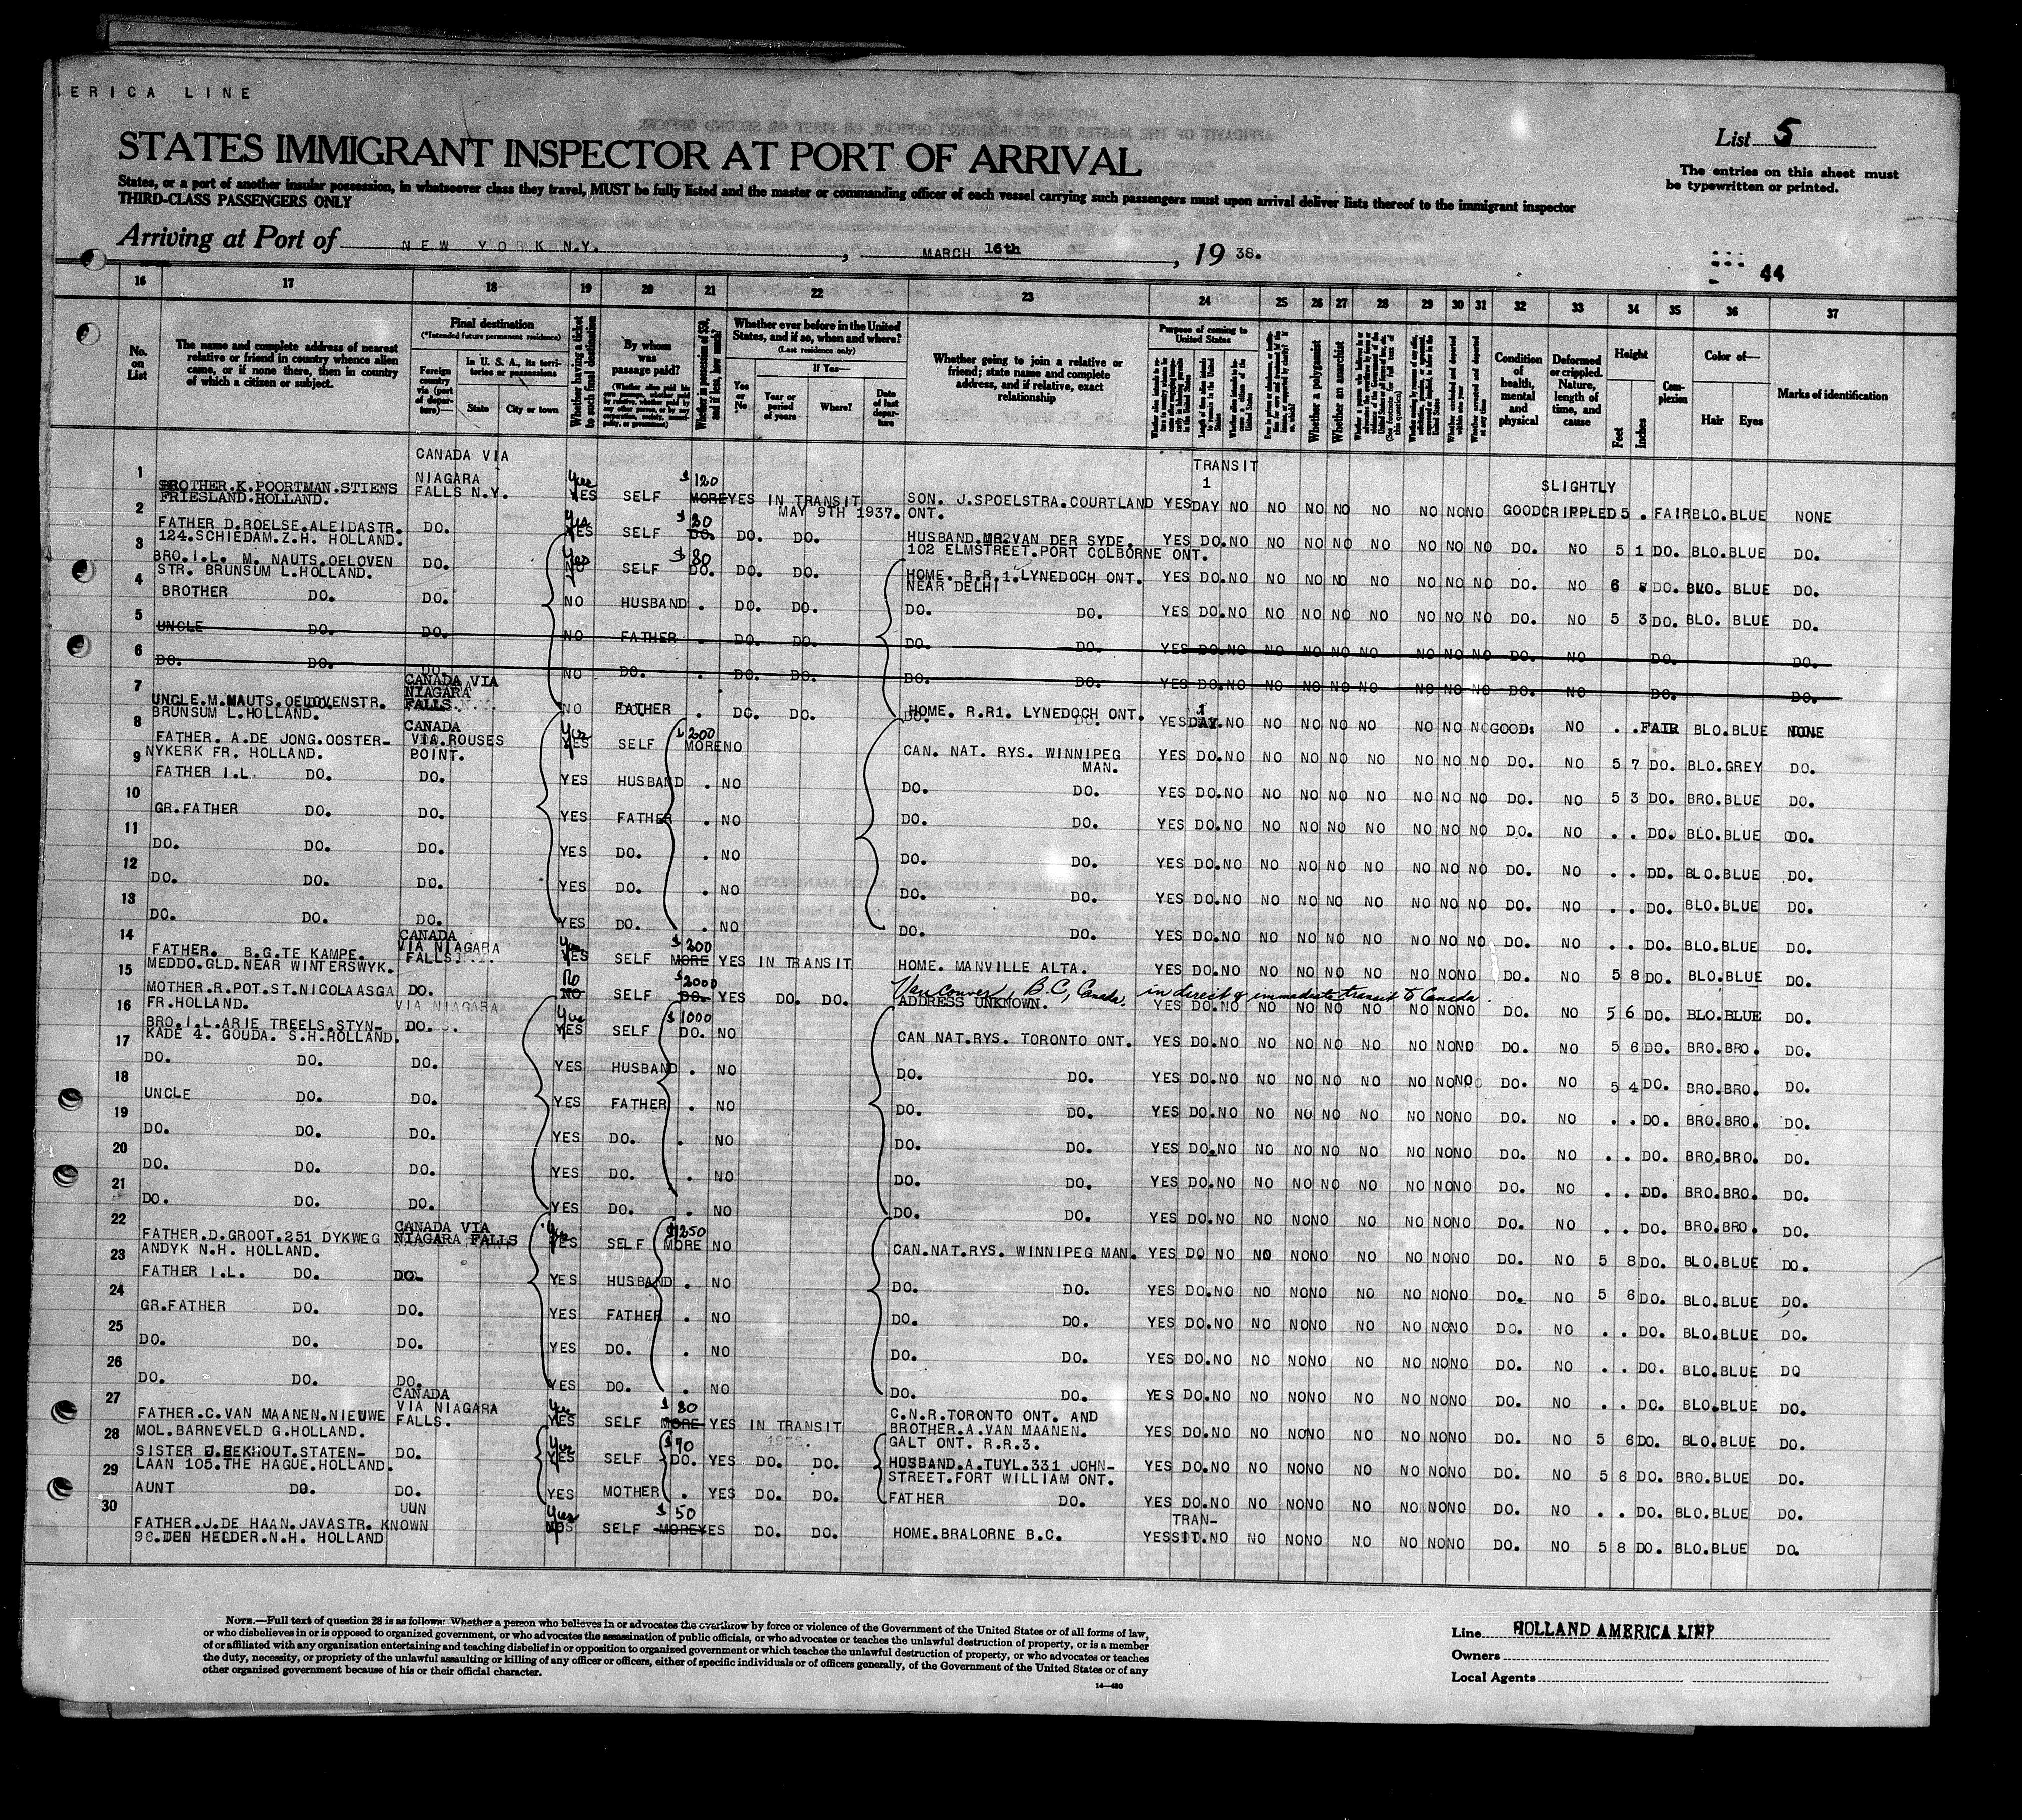 ERICA LINE
STATES IMMIGRANT INSPECTOR AT PORT OF ARRIVAL
List 5
The entries on this sheet must
be typewritten or printed.
States, or a port of another insular possession, in whatsoever class they travel, MUST be fully listed and the master or commanding officer of each vessel carrying such passengers must upon arrival deliver lists thereof to the immigrant inspector
THIRD-CLASS PASSENGERS ONLY
Arriving at Port of NEW YORK N.Y., MARCH 16th, 1938.
44
16 17 18 19 20 21 22 23 24 25 26 27 28 29 30 31 32 33 34 35 36 37
No. on List
The name and complete address of nearest relative or friend in country whence alien came, or if none there, then in country of which a citizen or subject.
Final destination
(*Intended future permanent residence)
Foreign country via (port of departure)—
In U. S. A., its territories or possessions
State
City or town
Whether having a ticket to such final destination
By whom was passage paid?
Whether in possession of $50, and if less, how much?
Whether ever before in the United States, and if so, when and where?
(Last residence only)
Yes or No
If Yes—
Year or period of years
Where?
Date of last departure
Whether going to join a relative or friend; state name and complete address, and if relative, exact relationship
Purpose of coming to United States
Whether a polygamist
Whether an anarchist
Condition of health, mental and physical
Deformed or crippled. Nature, length of time, and cause
Height
Feet
Inches
Complexion
Color of—
Hair
Eyes
Marks of identification
1 BROTHER.K.POORTMAN.STIENS FRIESLAND.HOLLAND. CANADA VIA NIAGARA FALLS N.Y. Yes YES SELF $120 MORE YES IN TRANSIT MAY 9TH 1937. SON. J.SPOELSTRA.COURTLAND ONT. YES TRANSIT 1 DAY NO NO NO NO NO NO NO NO GOOD SLIGHTLY CRIPPLED 5 . FAIR BLO. BLUE NONE
2 FATHER D.ROELSE.ALEIDASTR. 124.SCHIEDAM.Z.H. HOLLAND. DO. Yes YES SELF $80 DO. DO. DO. HUSBAND.MR VAN DER SYDE. 102 ELMSTREET.PORT COLBORNE ONT. YES DO. NO NO NO NO NO NO NO NO DO. NO 5 1 DO. BLO. BLUE DO.
3 BRO.I.L. M. NAUTS.OELOVEN STR. BRUNSUM L.HOLLAND. DO. Yes SELF $80 DO. DO. DO. HOME. R.R.1.LYNEDOCH ONT. NEAR DELHI YES DO. NO NO NO NO NO NO NO NO DO. NO 6 DO. BLO. BLUE DO.
4 BROTHER DO. DO. NO HUSBAND . DO. DO. DO. DO. YES DO. NO NO NO NO NO NO NO NO DO. NO 5 3 DO. BLO. BLUE DO.
5 UNCLE DO. DO. NO FATHER . DO. DO. DO. DO. YES DO. NO NO NO NO NO NO NO NO DO. NO DO. DO.
6 DO. DO. DO. NO DO. . DO. DO. DO. DO. YES DO. NO NO NO NO NO NO NO NO DO. NO DO. DO.
7 UNCLE.M.NAUTS.OELOVENSTR. BRUNSUM L.HOLLAND. CANADA VIA NIAGARA FALLS. NO FATHER . DO. DO. HOME. R.R1. LYNEDOCH ONT. YES 1 DAY. NO NO NO NO NO NO NO NO GOOD. NO . . FAIR BLO. BLUE NONE
8 FATHER. A.DE JONG.OOSTER- NYKERK FR. HOLLAND. CANADA VIA.ROUSES POINT. Yes YES SELF $200 MORE NO CAN. NAT. RYS. WINNIPEG MAN. YES DO. NO NO NO NO NO NO NO NO DO. NO 5 7 DO. BLO. GREY DO.
9 FATHER I.L. DO. DO. YES HUSBAND . NO DO. DO. YES DO. NO NO NO NO NO NO NO NO DO. NO 5 3 DO. BRO. BLUE DO.
10 GR.FATHER DO. DO. YES FATHER . NO DO. DO. YES DO. NO NO NO NO NO NO NO NO DO. NO . . DO. BLO. BLUE DO.
11 DO. DO. DO. YES DO. . NO DO. DO. YES DO. NO NO NO NO NO NO NO NO DO. NO . . DO. BLO. BLUE DO.
12 DO. DO. DO. YES DO. . NO DO. DO. YES DO. NO NO NO NO NO NO NO NO DO. NO . . DO. BLO. BLUE DO.
13 DO. DO. DO. YES DO. . NO DO. DO. YES DO. NO NO NO NO NO NO NO NO DO. NO . . DO. BLO. BLUE DO.
14 FATHER. B.G.TE KAMPE. MEDDO.GLD.NEAR WINTERSWYK. CANADA VIA NIAGARA FALLS. Yes YES SELF $200 MORE YES IN TRANSIT HOME. MANVILLE ALTA. YES DO. NO NO NO NO NO NO NO NO DO. NO 5 8 DO. BLO. BLUE DO.
15 MOTHER.R.POT.ST.NICOLAASGA FR.HOLLAND. DO. No NO SELF $2000 DO. YES DO. DO. Vancouver, B.C., Canada. in direct & immediate transit to Canada. ADDRESS UNKNOWN. YES DO. NO NO NO NO NO NO NO NO DO. NO 5 6 DO. BLO. BLUE DO.
16 BRO.I.L.ARIE TREELS.STYN- KADE 4. GOUDA. S.H.HOLLAND. VIA NIAGARA DO. Yes YES SELF $1000 DO. NO CAN NAT.RYS. TORONTO ONT. YES DO. NO NO NO NO NO NO NO NO DO. NO 5 6 DO. BRO. BRO. DO.
17 DO. DO. DO. YES HUSBAND . NO DO. DO. YES DO. NO NO NO NO NO NO NO NO DO. NO 5 4 DO. BRO. BRO. DO.
18 UNCLE DO. DO. YES FATHER . NO DO. DO. YES DO. NO NO NO NO NO NO NO NO DO. NO . . DO. BRO. BRO. DO.
19 DO. DO. DO. YES DO. . NO DO. DO. YES DO. NO NO NO NO NO NO NO NO DO. NO . . DO. BRO. BRO. DO.
20 DO. DO. DO. YES DO. . NO DO. DO. YES DO. NO NO NO NO NO NO NO NO DO. NO . . DO. BRO. BRO. DO.
21 DO. DO. DO. YES DO. . NO DO. DO. YES DO. NO NO NO NO NO NO NO NO DO. NO . . DO. BRO. BRO. DO.
22 FATHER.D.GROOT.251 DYKWEG ANDYK N.H. HOLLAND. CANADA VIA NIAGARA FALLS Yes YES SELF $1250 MORE NO CAN.NAT.RYS. WINNIPEG MAN. YES DO NO NO NO NO NO NO NO NO DO. NO 5 8 DO. BLO. BLUE DO.
23 FATHER I.L. DO. DO. YES HUSBAND . NO DO. DO. YES DO. NO NO NO NO NO NO NO NO DO. NO 5 6 DO. BLO. BLUE DO.
24 GR.FATHER DO. DO. YES FATHER . NO DO. DO. YES DO. NO NO NO NO NO NO NO NO DO. NO . . DO. BLO. BLUE DO.
25 DO. DO. DO. YES DO. . NO DO. DO. YES DO. NO NO NO NO NO NO NO NO DO. NO . . DO. BLO. BLUE DO
26 DO. DO. DO. YES DO. . NO DO. DO. YES DO. NO NO NO NO NO NO NO NO DO. NO . . DO. BLO. BLUE DO.
27 FATHER.C.VAN MAANEN.NIEUWE MOL.BARNEVELD G.HOLLAND. CANADA VIA NIAGARA FALLS. Yes YES SELF $80 MORE YES IN TRANSIT C.N.R.TORONTO ONT. AND BROTHER.A.VAN MAANEN. GALT ONT. R.R.3. YES DO. NO NO NO NO NO NO NO NO DO. NO 5 6 DO. BLO. BLUE DO.
28 SISTER EEKHOUT.STATEN- LAAN 105.THE HAGUE.HOLLAND. DO. Yes YES SELF $70 DO. YES DO. DO. HUSBAND.A.TUYL.331 JOHN- STREET.FORT WILLIAM ONT. YES DO. NO NO NO NO NO NO NO NO DO. NO 5 6 DO. BRO. BLUE DO.
29 AUNT DO. DO. YES MOTHER . YES DO. DO. FATHER DO. YES DO. NO NO NO NO NO NO NO NO DO. NO . . DO. BLO. BLUE DO.
30 FATHER.J.DE HAAN.JAVASTR. 98.DEN HELDER.N.H. HOLLAND UN KNOWN Yes SELF $50 MORE YES DO. DO. HOME.BRALORNE B.C. YES TRAN- SIT. NO NO NO NO NO NO NO NO DO. NO 5 8 DO. BLO. BLUE DO.
NOTE.—Full text of question 28 is as follows: Whether a person who believes in or advocates the overthrow by force or violence of the Government of the United States or of all forms of law,
or who disbelieves in or is opposed to organized government, or who advocates the assassination of public officials, or who advocates or teaches the unlawful destruction of property, or is a member
of or affiliated with any organization entertaining and teaching disbelief in or opposition to organized government or which teaches the unlawful destruction of property, or who advocates or teaches
the duty, necessity, or propriety of the unlawful assaulting or killing of any officer or officers, either of specific individuals or of officers generally, of the Government of the United States or of any
other organized government because of his or their official character.
14—480
Line HOLLAND AMERICA LINE
Owners
Local Agents